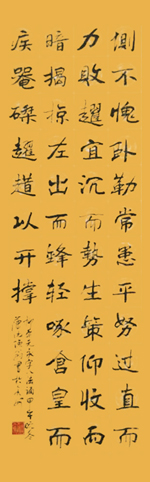 側不愧卧勒常患平努过直而
力敗趯宜沉而勢生策仰收而
暗揭掠左出而鋒轻啄倉皇而
疾罨磔趑趄以开撑